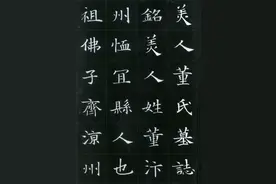 美人董氏墓誌
銘美人姓董汴
州恤冝縣人也
祖佛子齊涼州